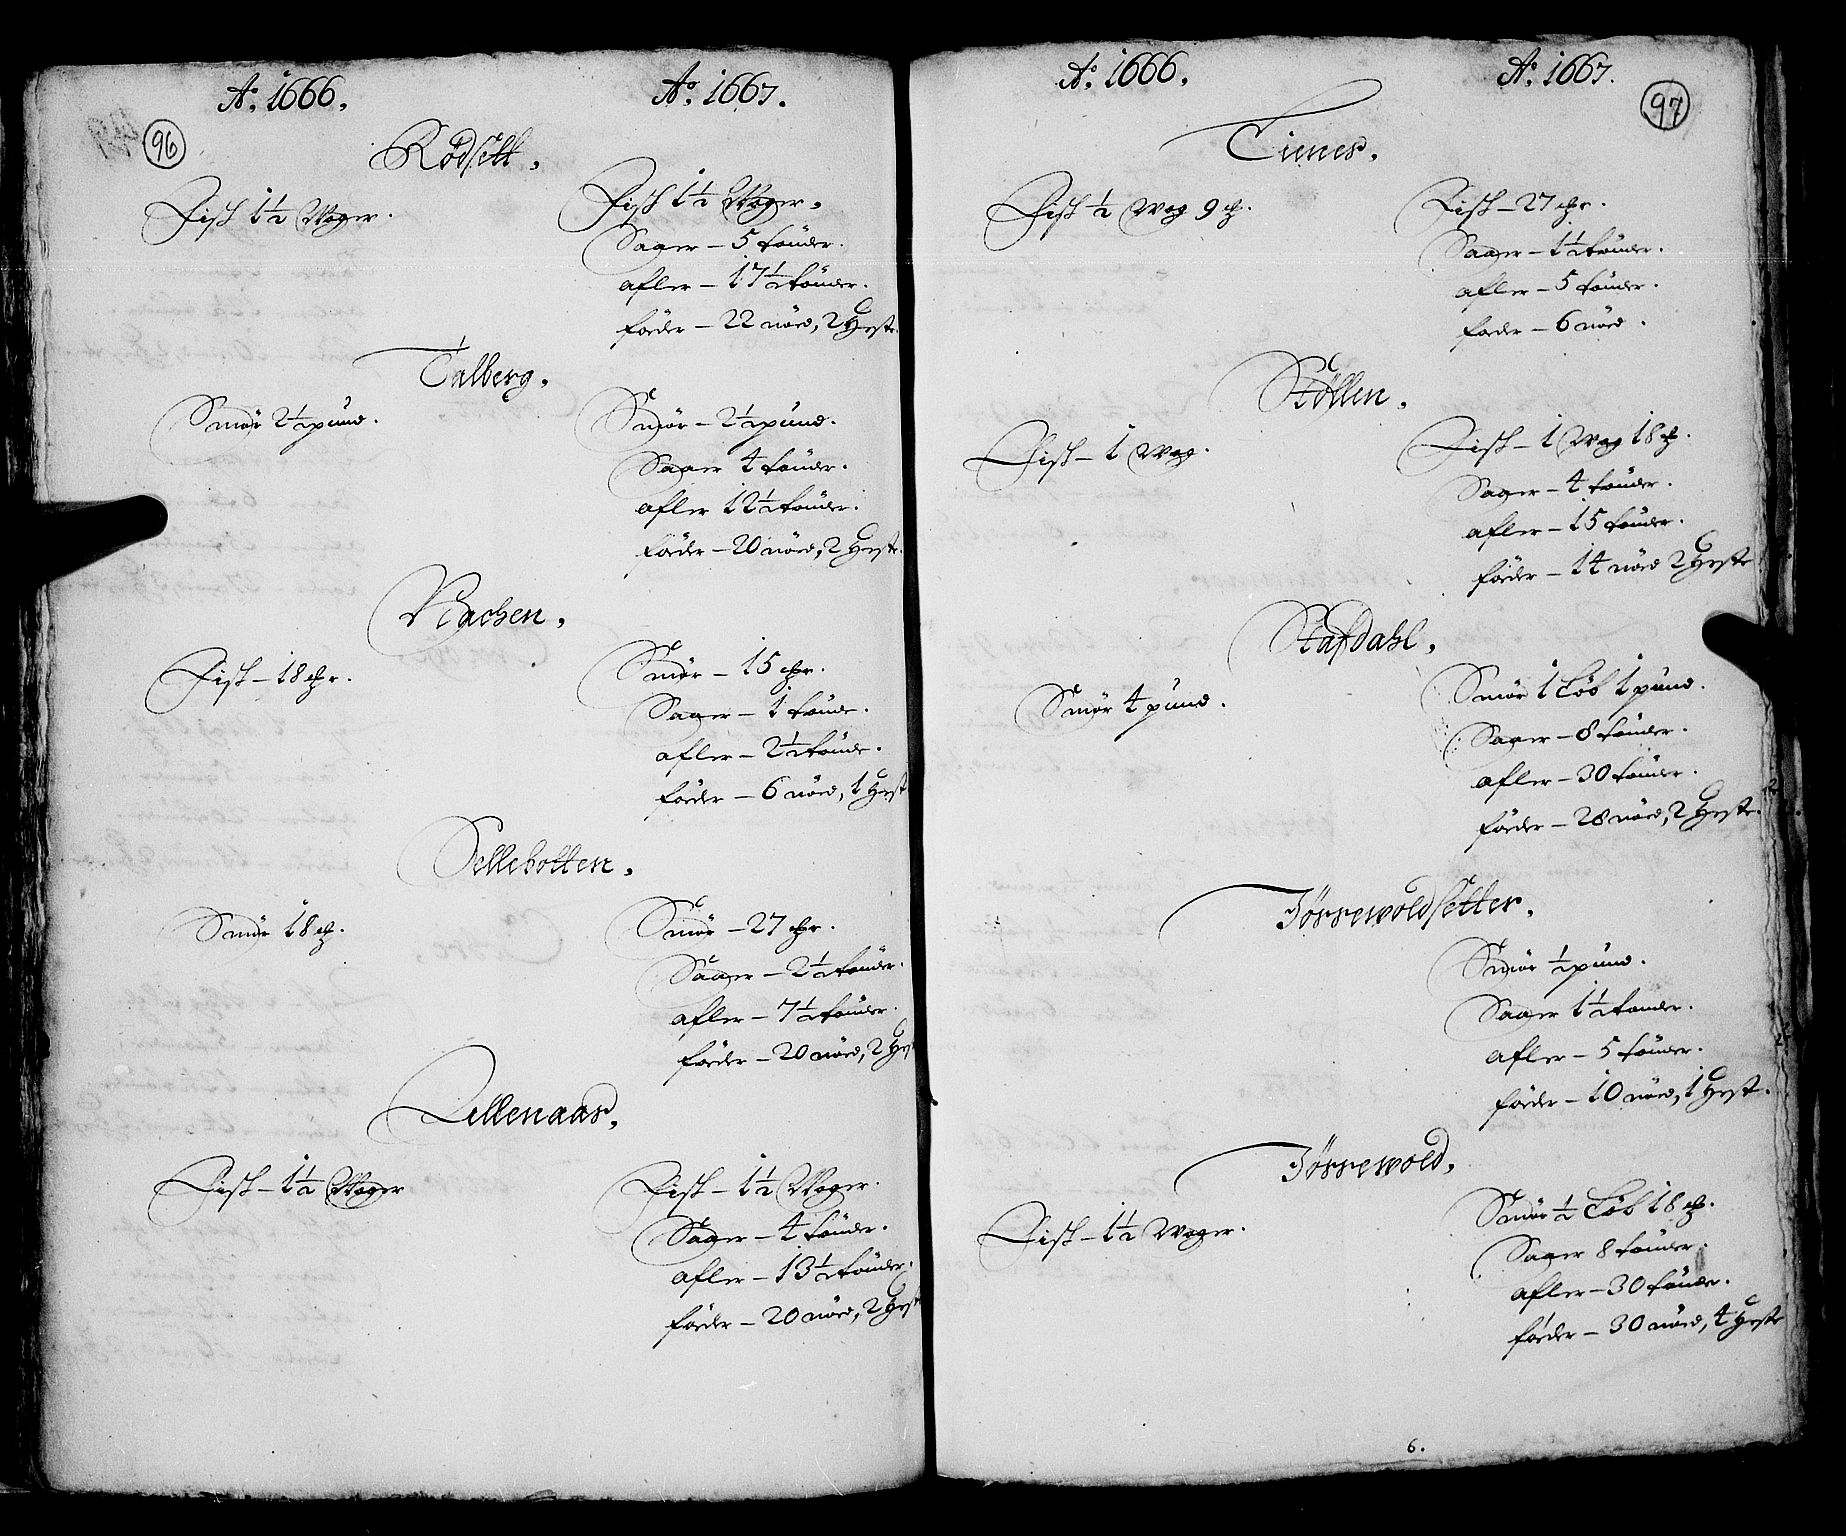 Ao. 1666. Ao. 1667.
96
Rödsett.
Fisk 1½ Woger. Fisk 1½ Woger.
Saaer – 5 tönder.
afler – 17½ tönder.
föder – 22 nöed, 2 Heste.
Talberg.
Smör 2½ pund. Smör – 2½ pund.
Saaer 4 tönder.
afler 12½ tönder.
föder – 20 nöed, 2 Heste.
Nachen.
Fisk – 18 ℔r. Smör – 15 ℔r.
Saaer – 1 tönde.
afler – 2½ tönde.
föder – 6 nöed, 1 Hest
Sellebotten.
Smör 18 ℔. Smör – 27 ℔r.
Saaer – 2½ tönder.
afler – 7½ tönder.
föder – 20 nöed, 2 Hest
Lillenaas.
Fisk – 1½ Woger Fisk – 1½ Woger.
Saaer – 4 tönder.
afler – 13½ tönder.
föder – 20 nöed, 2 Hest
Ao. 1666. Ao. 1667.
97
Tienes.
Fisk ½ Wog 9 ℔. Fisk – 27 ℔r.
Saaer – 1½ tönder.
afler – 5 tönder.
föder – 6 nöed.
Støllen.
Fisk – 1 Wog. Fisk – 1 Wog 18 ℔.
Saaer – 4 tönder.
afler – 15 tönder.
föder – 14 nöed 2 Heste
Stafdahl.
Smör 4 pund. Smör 1 Löb 1 pund.
Saaer – 8 tönder.
afler – 30 tönder.
föder – 28 nöed, 2 Heste.
Tørrewoldsetter.
Smör ½ pund.
Saaer 1½ tönder.
afler – 5 tönder.
föder – 10 nöed, 1 Hest.
Tørrewold.
Fisk – 1½ Woger. Smör ½ Löb 18 ℔.
Saaer 8 tönder.
afler – 30 tönder.
föder – 30 nöed, 4 Heste
6.